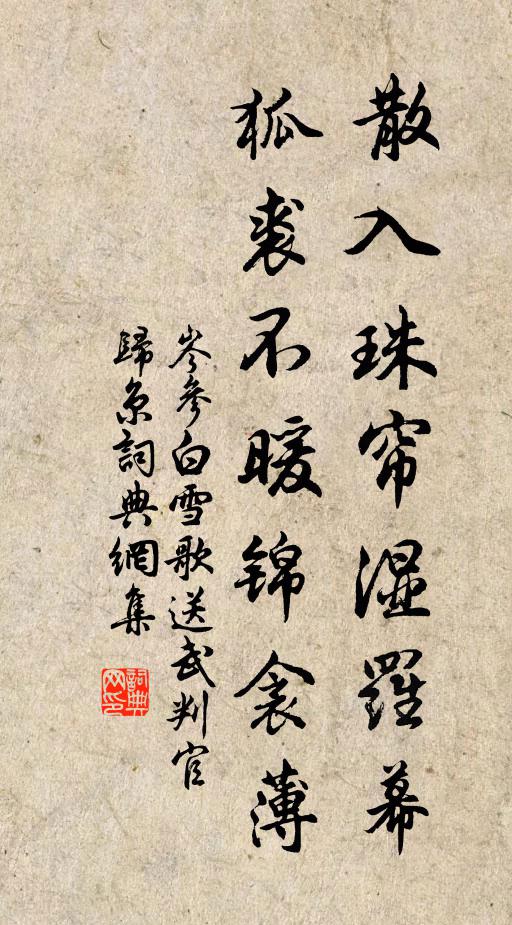 散入珠帘湿羅幕
狐裘不暖锦衾薄
岑參白雪歌送武判官
歸京詞典網集
詞典网印